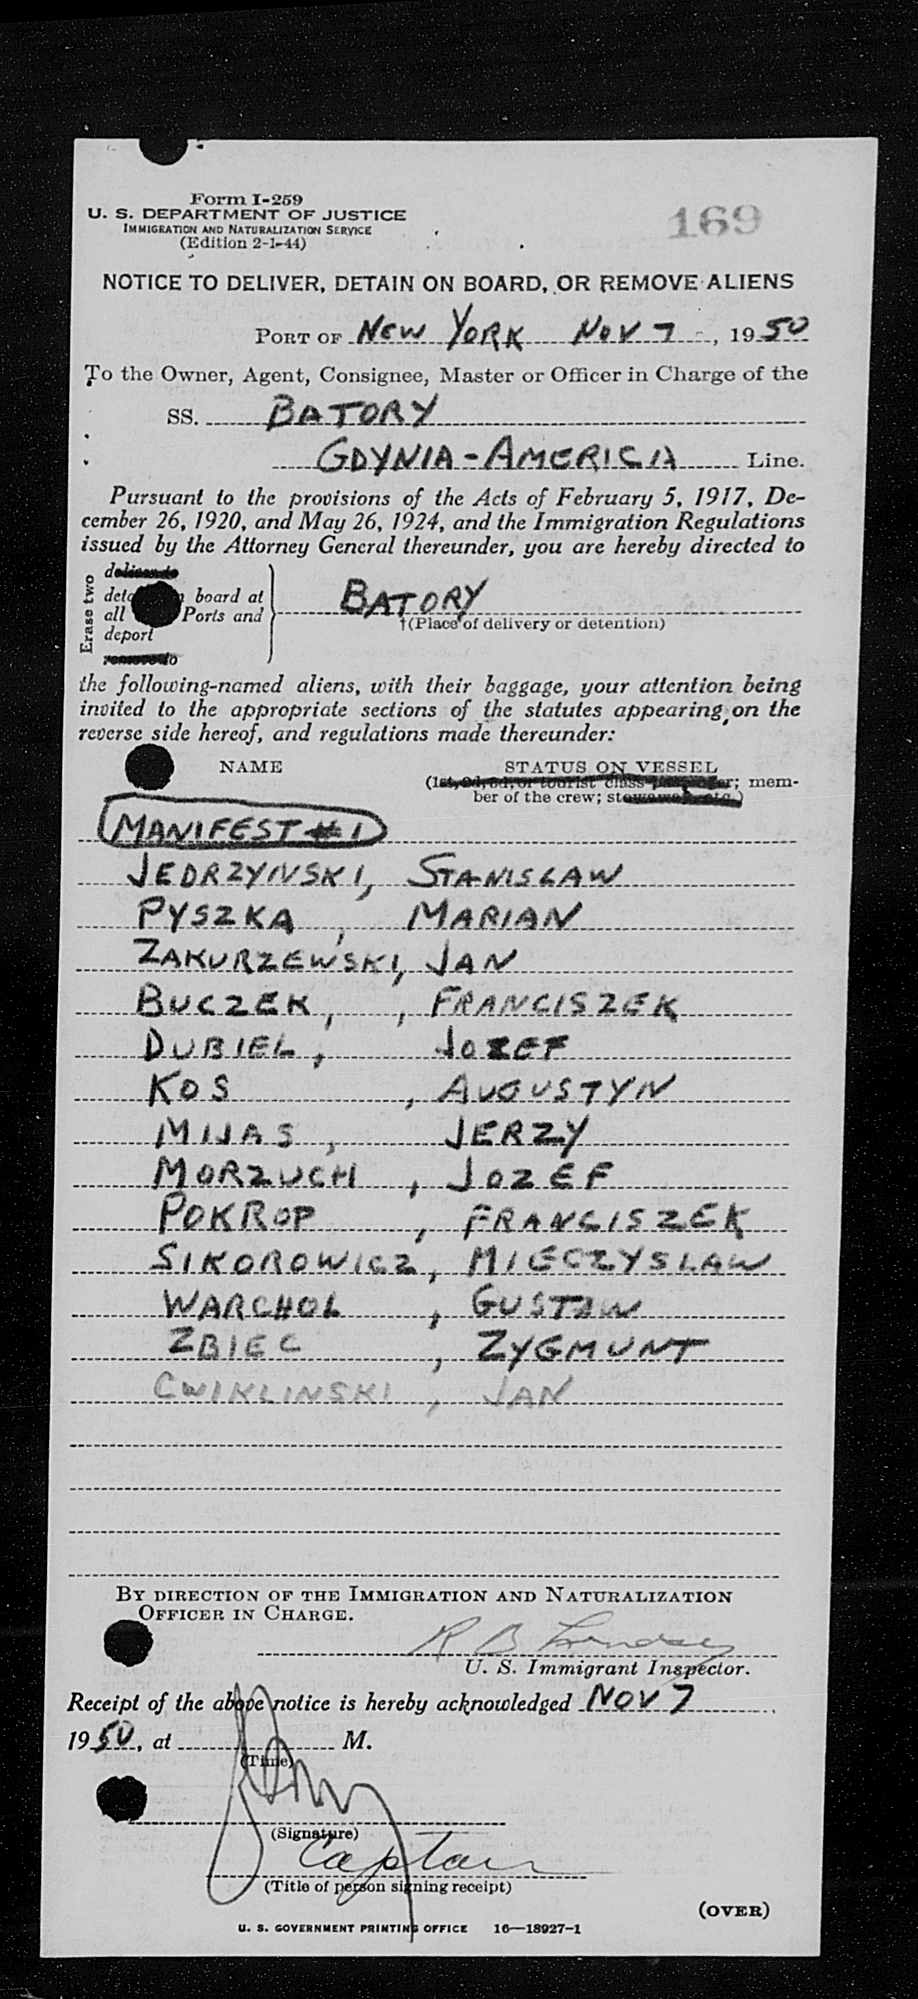 Form I-259
U. S. DEPARTMENT OF JUSTICE
IMMIGRATION AND NATURALIZATION SERVICE
(Edition 2-1-44)
169
NOTICE TO DELIVER, DETAIN ON BOARD, OR REMOVE ALIENS
PORT OF NEW YORK NOV 7, 1950
To the Owner, Agent, Consignee, Master or Officer in Charge of the
SS. BATORY
GDYNIA-AMERICA Line.
Pursuant to the provisions of the Acts of February 5, 1917, De-
cember 26, 1920, and May 26, 1924, and the Immigration Regulations
issued by the Attorney General thereunder, you are hereby directed to
Erase two
board at
all Ports and
deport
BATORY
†(Place of delivery or detention)
the following-named aliens, with their baggage, your attention being
invited to the appropriate sections of the statutes appearing on the
reverse side hereof, and regulations made thereunder:
NAME STATUS ON VESSEL
(1st, 2d, 3d, or tourist class passenger; mem-
ber of the crew; stowaway, etc.)
MANIFEST #1
JEDRZYNSKI, STANISLAW
PYSZKA, MARIAN
ZAKURZEWSKI, JAN
BUCZEK, , FRANCISZEK
DUBIEL, JOZEF
KOS , AUGUSTYN
MIJAS, JERZY
MORZUCH, JOZEF
POKROP, FRANCISZEK
SIKOROWICZ, MIECZYSLAW
WARCHOL, GUSTAW
ZBIEC, ZYGMUNT
CWIKLINSKI, JAN
BY DIRECTION OF THE IMMIGRATION AND NATURALIZATION
OFFICER IN CHARGE.
R B Lindsey
U. S. Immigrant Inspector.
Receipt of the above notice is hereby acknowledged NOV 7
1950, at M.
(Time)
(Signature)
Captain
(Title of person signing receipt)
(OVER)
U. S. GOVERNMENT PRINTING OFFICE 16—18927-1